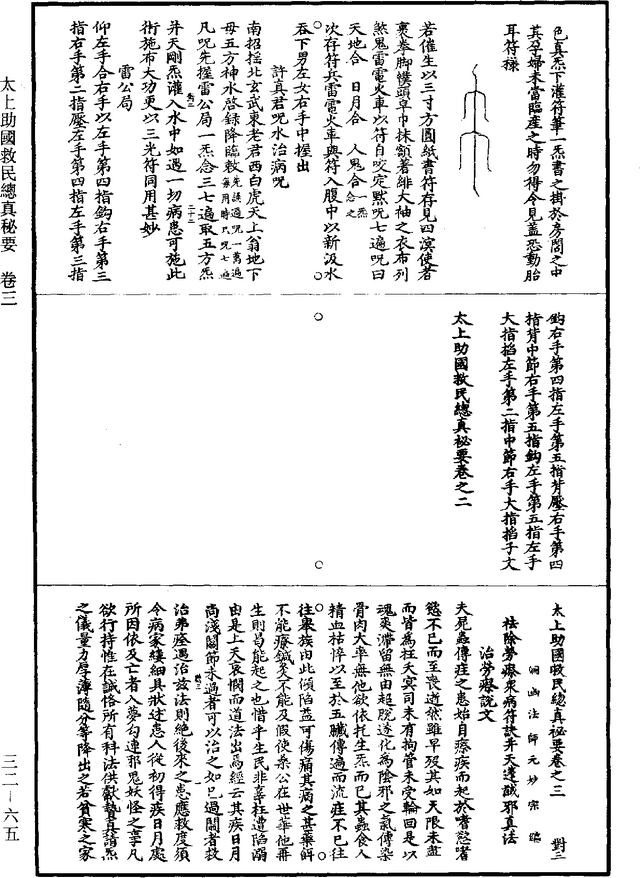 色真炁下灌符筆一炁書之掛於房閤之中
其孕婦未當臨產之時勿得令見蓋恐動胎
耳符様
若催生以三寸方圓紙書符存見四溟使者
裹拳脚幞頭皁巾抹額著緋大袖之衣布列
煞鬼雷電火車以符自咬定黙呪七遍呪曰
天地合　日月合　人鬼合一炁念之
次存符兵雷電火車與符入腹中以新汲水
吞下男左女右手中握出
許真君呪水治病呪
南招搖北玄武東老君西白虎天上翁地下
母五方神水啓録降臨敕先誦遍呪一萬遍每用時只呪七遍
凡呪先握雷公局一炁念三七遍取五方炁
并天剛炁灌入水中如遇一切病患可施此
術施布大功更以三光符同用甚妙
雷公局
仰左手合右手以左手第四指鈎右手第三
指右手第二指壓左手第四指左手第三指
鈎右手第四指左手第五指背壓右手第四
指背中節右手第五指鈎左手第五指左手
大指掐左手第二指中節右手大指掐子文
太上助國救民總真祕要卷之二
太上助國救民總真祕要卷之三　對三
洞幽法師元妙宗編
祛除勞瘵衆病符訣并天蓬馘邪真法
治勞瘵說文
夫死蟲傳疰之患始自瘵疾而起於嗜慾嗜
慾不已而至喪逝然雖早殁其如天限未盡
而皆為枉夭冥司未有拘管未受輪回是以
魂爽滯留無由超脫遂化為陰邪之氣傳染
骨肉大率無他欲依托生炁而已其蟲食人
精血枯悴以至於五臟傳遍而流疰不已往
往舉族由此傾陷盖可傷痛其病之甚藥餌
不能療鍼灸不能及假使桑公在世華他再
生則曷能起之也惜乎生民非辜枉遭陷溺
由是上天哀憫而道法出焉經云其疾日月
尚淺關節未過者可以治之如已過關者救
治弗痊遇治兹法則絶後來之患應救度須
令病家縷細具狀述患人從初得疾日月處
所因依及亡者入夢勾連邪鬼妖怪之事凡
欲行持性在誠恪所有科法供獻贄其諸炁
之儀量力厚薄隨分等降出之若貧寒之家
太上助國救民總真秘要　卷三
三二－六五